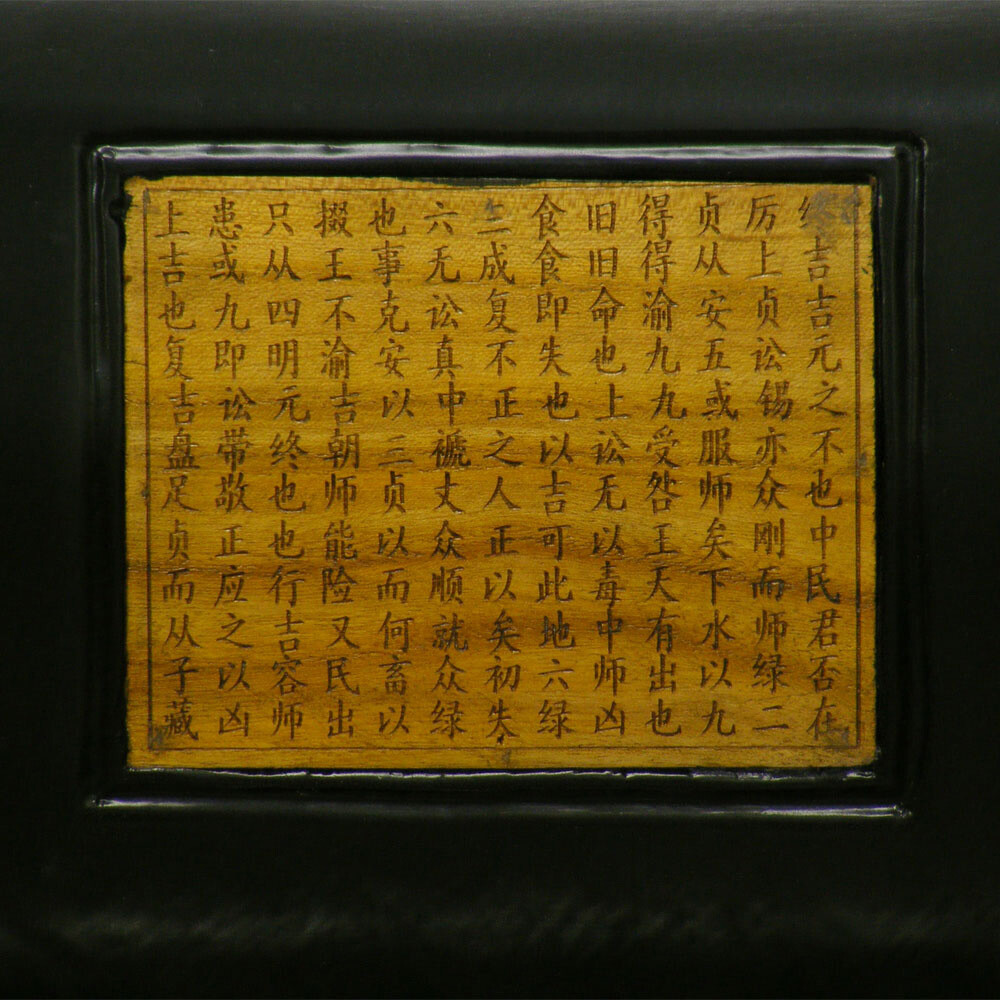 吉吉元之不也中民君否在
厉上贞讼锡亦众刚而师绿二
贞从安五或服师矣下水以九
得得渝九九受咎王天有出也
旧旧命也上讼无以毒中师凶
食食即失也以吉可此地六绿
三成复不正之人正以矣初失
六无讼真中褫丈众顺就众绿
也事克安以三贞以而何畜以
掇王不渝吉朝师能险又民出
只从四明元终也也行吉容师
患或九即讼带敬正应之以凶
上吉也复吉盘足贞而从子藏